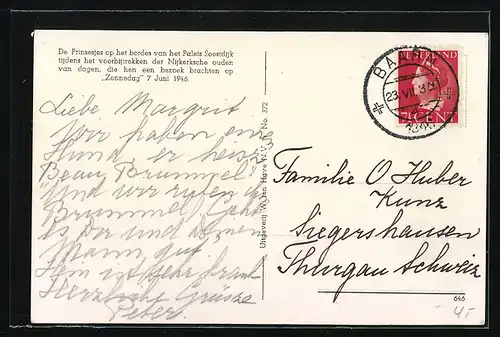 De Prinsesjes op het bordes van het Paleis Soestdijk
tijdens het voorbijtrekken der Nijkerksche ouden
van dagen, die hen een bezoek brachten op
„Zonnedag" 7 Juni 1946.
Liebe Margrit
Wir haben en
Hund, er heißt
Beau Brummel
Und wir rufen
Brummel, Geht
es Dir und deinem
Mann gut.
ist sehr krank
Herzliche Grüsze
Peter.
Uitgeverij W. ten Have N.V. No. 272
BAARN
23.VII
NEDERLAND
CENT
Familie O Huber
Kunz
Siegershausen
Thurgau Schweiz
646
4.-